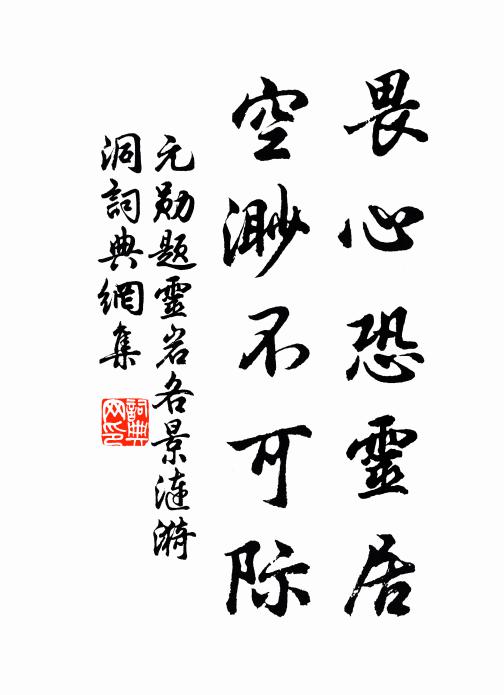 畏心恐靈居
空渺不可际
元勋题靈岩各景涟漪
洞詞典網集
詞典网印